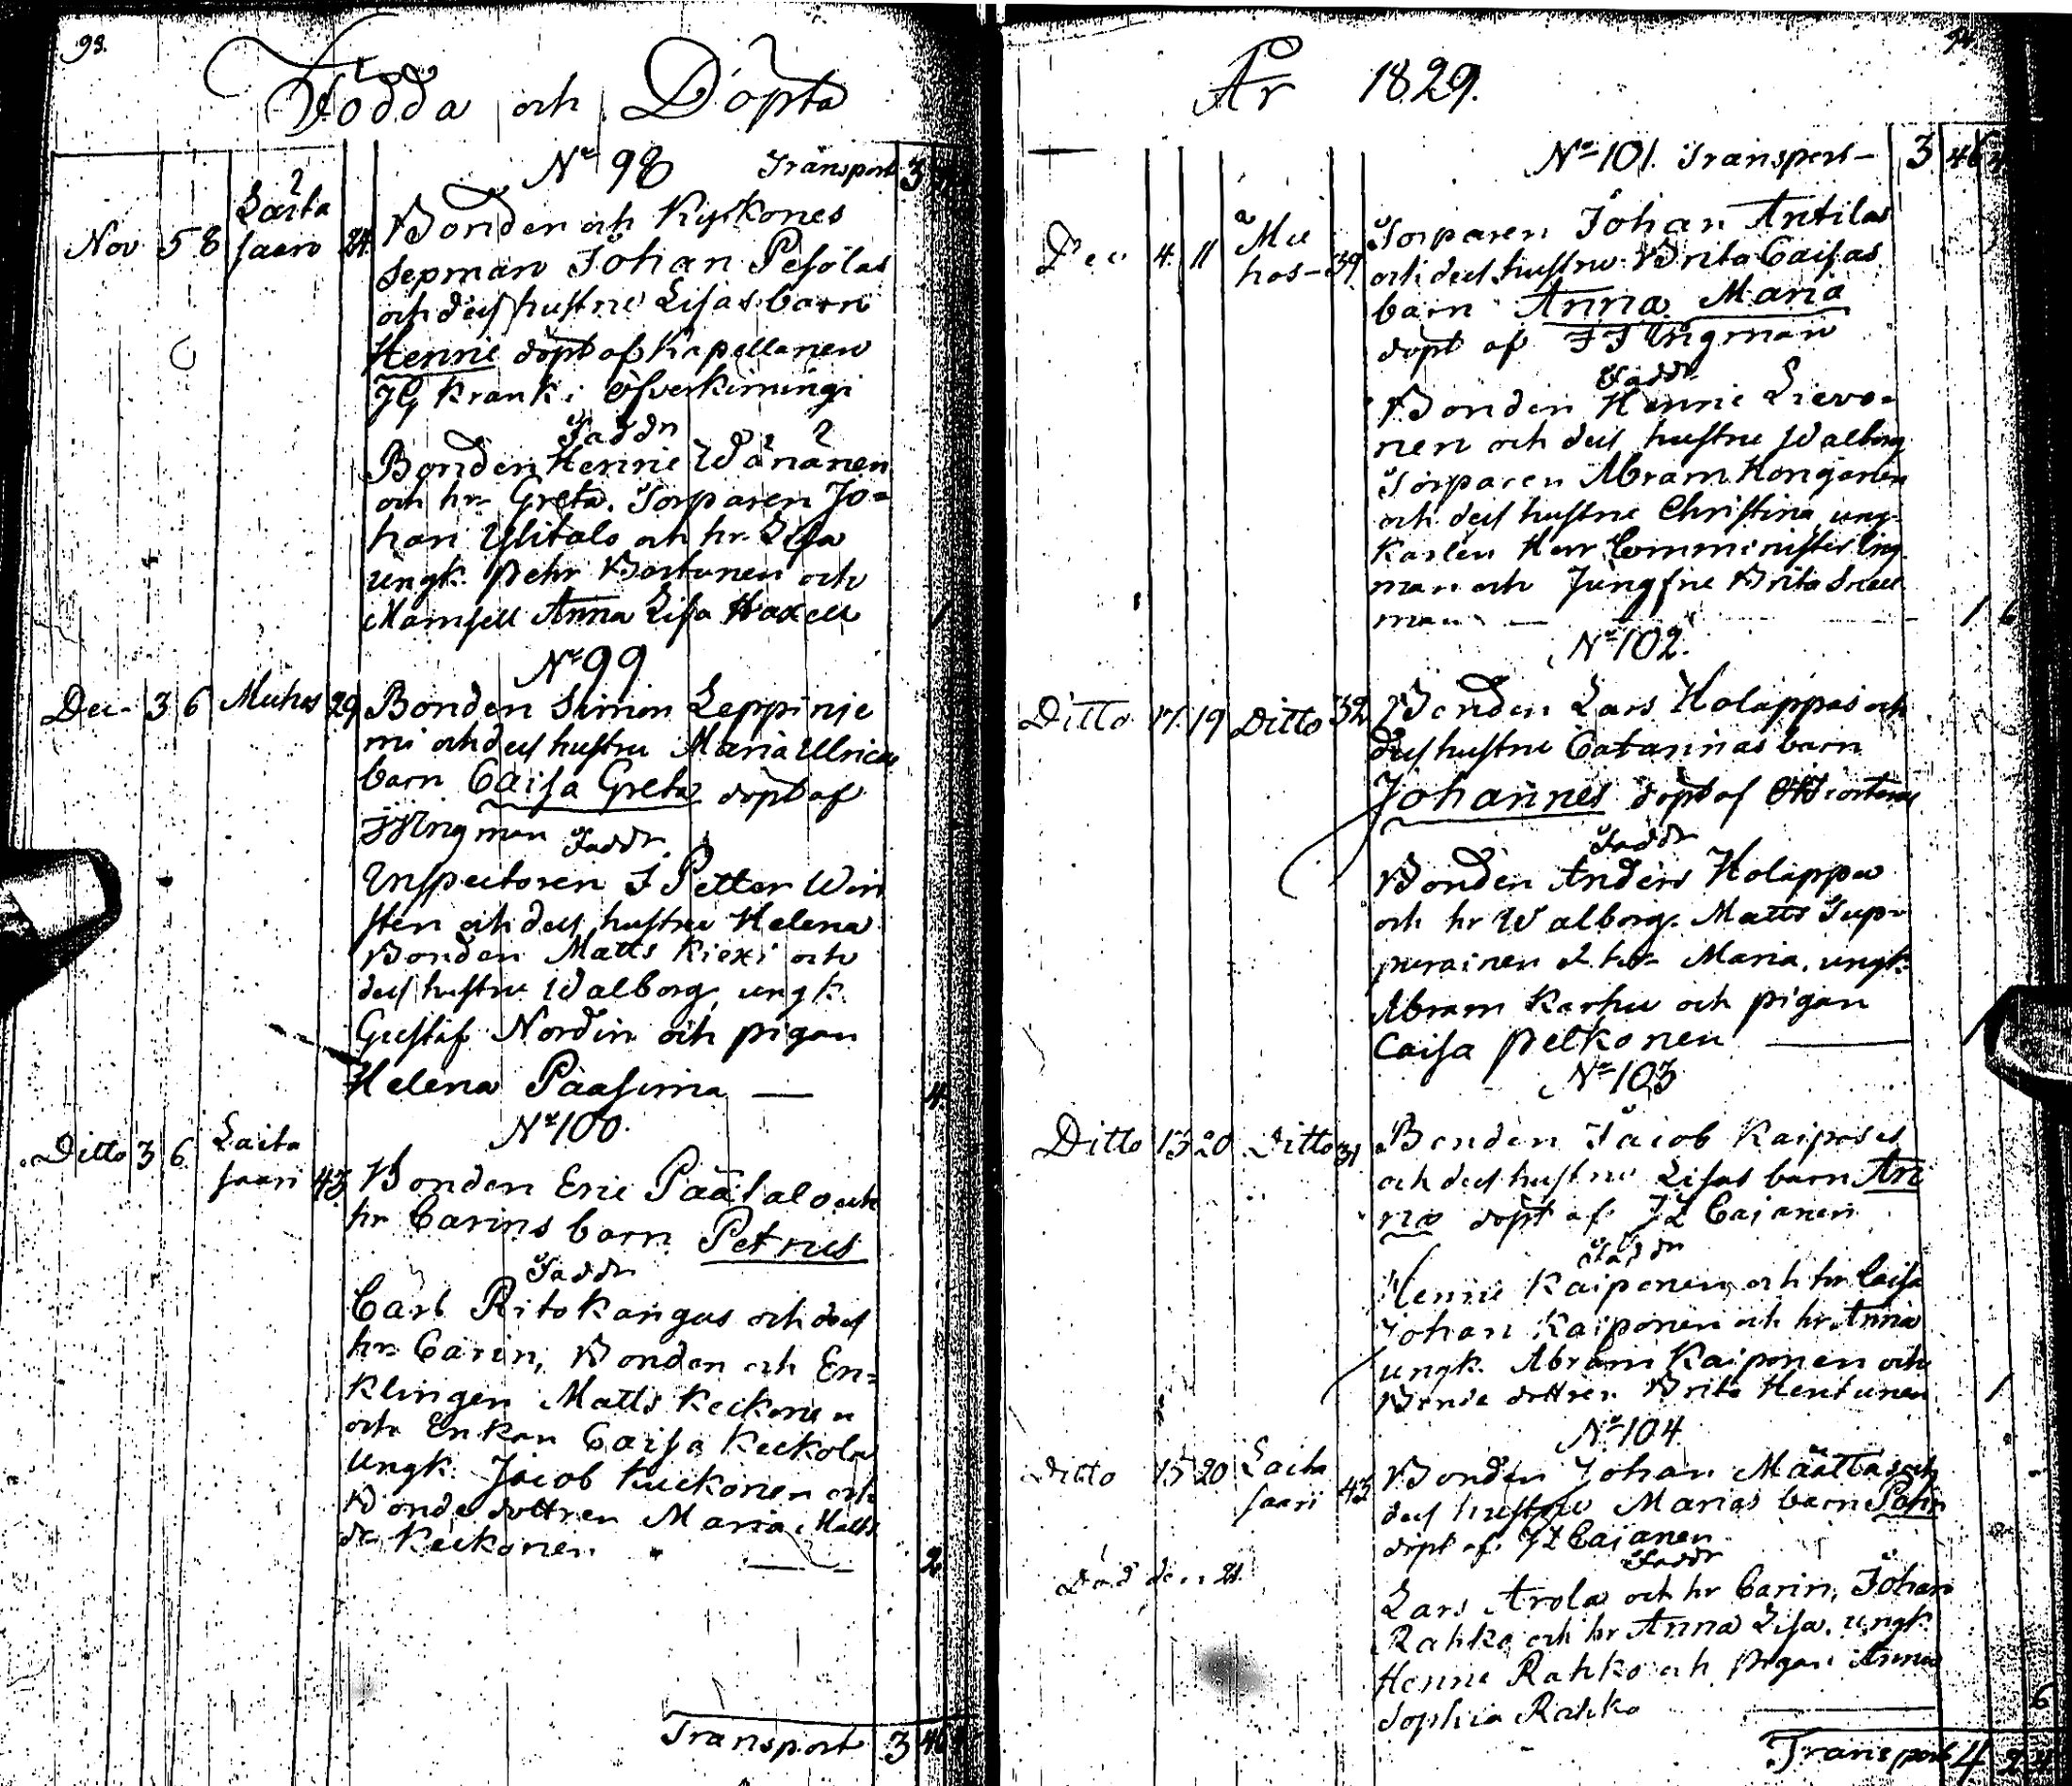 93.
Födda och Döpta
N:o 98 Transport 3
Nov 5 8 Laita saari 24. Bonden och Kyrkones
sepman Johan Pesolas
och dess hustru Lisas barn
Henric döpt af Kapellanen
Krank i Öfverkiimingi
Faddr
Bonden Henric Wänänen
och hr Greta. Torparen Jo=
han Ylitalo och hr Lisa
ungk. Pehr Kortunen och
Mamsell Anna Lisa Haxell 1
N:o 99
Dec. 3 6 Muhos 29 Bonden Simon Leppinie
mi och dess hustru Maria Ulricas
barn Caisa Greta döpt af
Ingman Faddr
Inspectoren J Petter Win
sten och dess hustru Helena
Bonden Matts Kiexi och
dess hustru Walborg, ungk.
Gustaf Nordin och pigan
Helena Paasima — 4.
N:o 100.
Ditto 3 6 Laita saari 43 Bonden Eric Päätalo och
hr Carins barn Petrus
Faddr
Carl Ritokangas och dess
hr Carin, Bonden och En=
klingen Matts Keckonen
och Enkan Caisa Keckola
ungk. Jacob Keckonen och
Bonde dottren Maria Matts
dr Keckonen. — 2
Transport 3 46
År 1829.
N:o 101. Transport — 3 46
Dec 4. 11 Mu hos — 39 Torparen Johan Antilas
och dess hustru Brita Caisas
barn Anna Maria
döpt af J J Ingman
Faddr
Bonden Henric Lievo=
nen och dess hustru Walborg
Torparen Abram Honganen
och dess hustru Christina, ung
karlen Herr Comminister Ing
man och Jungfru Brita Snell
man — 1 6
N:o 102.
Ditto 17. 19 Ditto 32 Bonden Lars Holappas och
dess hustru Catarinas barn
Johannes döpt af
Faddr
Bonden Anders Holappa
och hr Walborg. Matts Tup=
purainen & hr Maria, ungk.
Abram Karhu och pigan
Caisa Pelkonen —
N:o 103
Ditto 13 20 Ditto 31 Bonden Jacob Kaiposes
och dess hustru Lisas barn An
na döpt af J L Cajanen
Faddr
Henric Kaiponen och hr Caisa
Johan Kaiponen och hr Anna
ungk. Abram Kaiponen och
Bonde dottren Brita Hentunen 1
N:o 104
Ditto 15 20 Laita saari 43 Bonden Johan Määttas och
dess hustru Marias barn
döpt af J L Cajanen
Faddr
Död den 21.
Lars Arola och hr Carin, Johan
Rahko och hr Anna Lisa, ungk.
Henric Rahko och pigan Anna
Sophia Rahko — 6
Transport 4